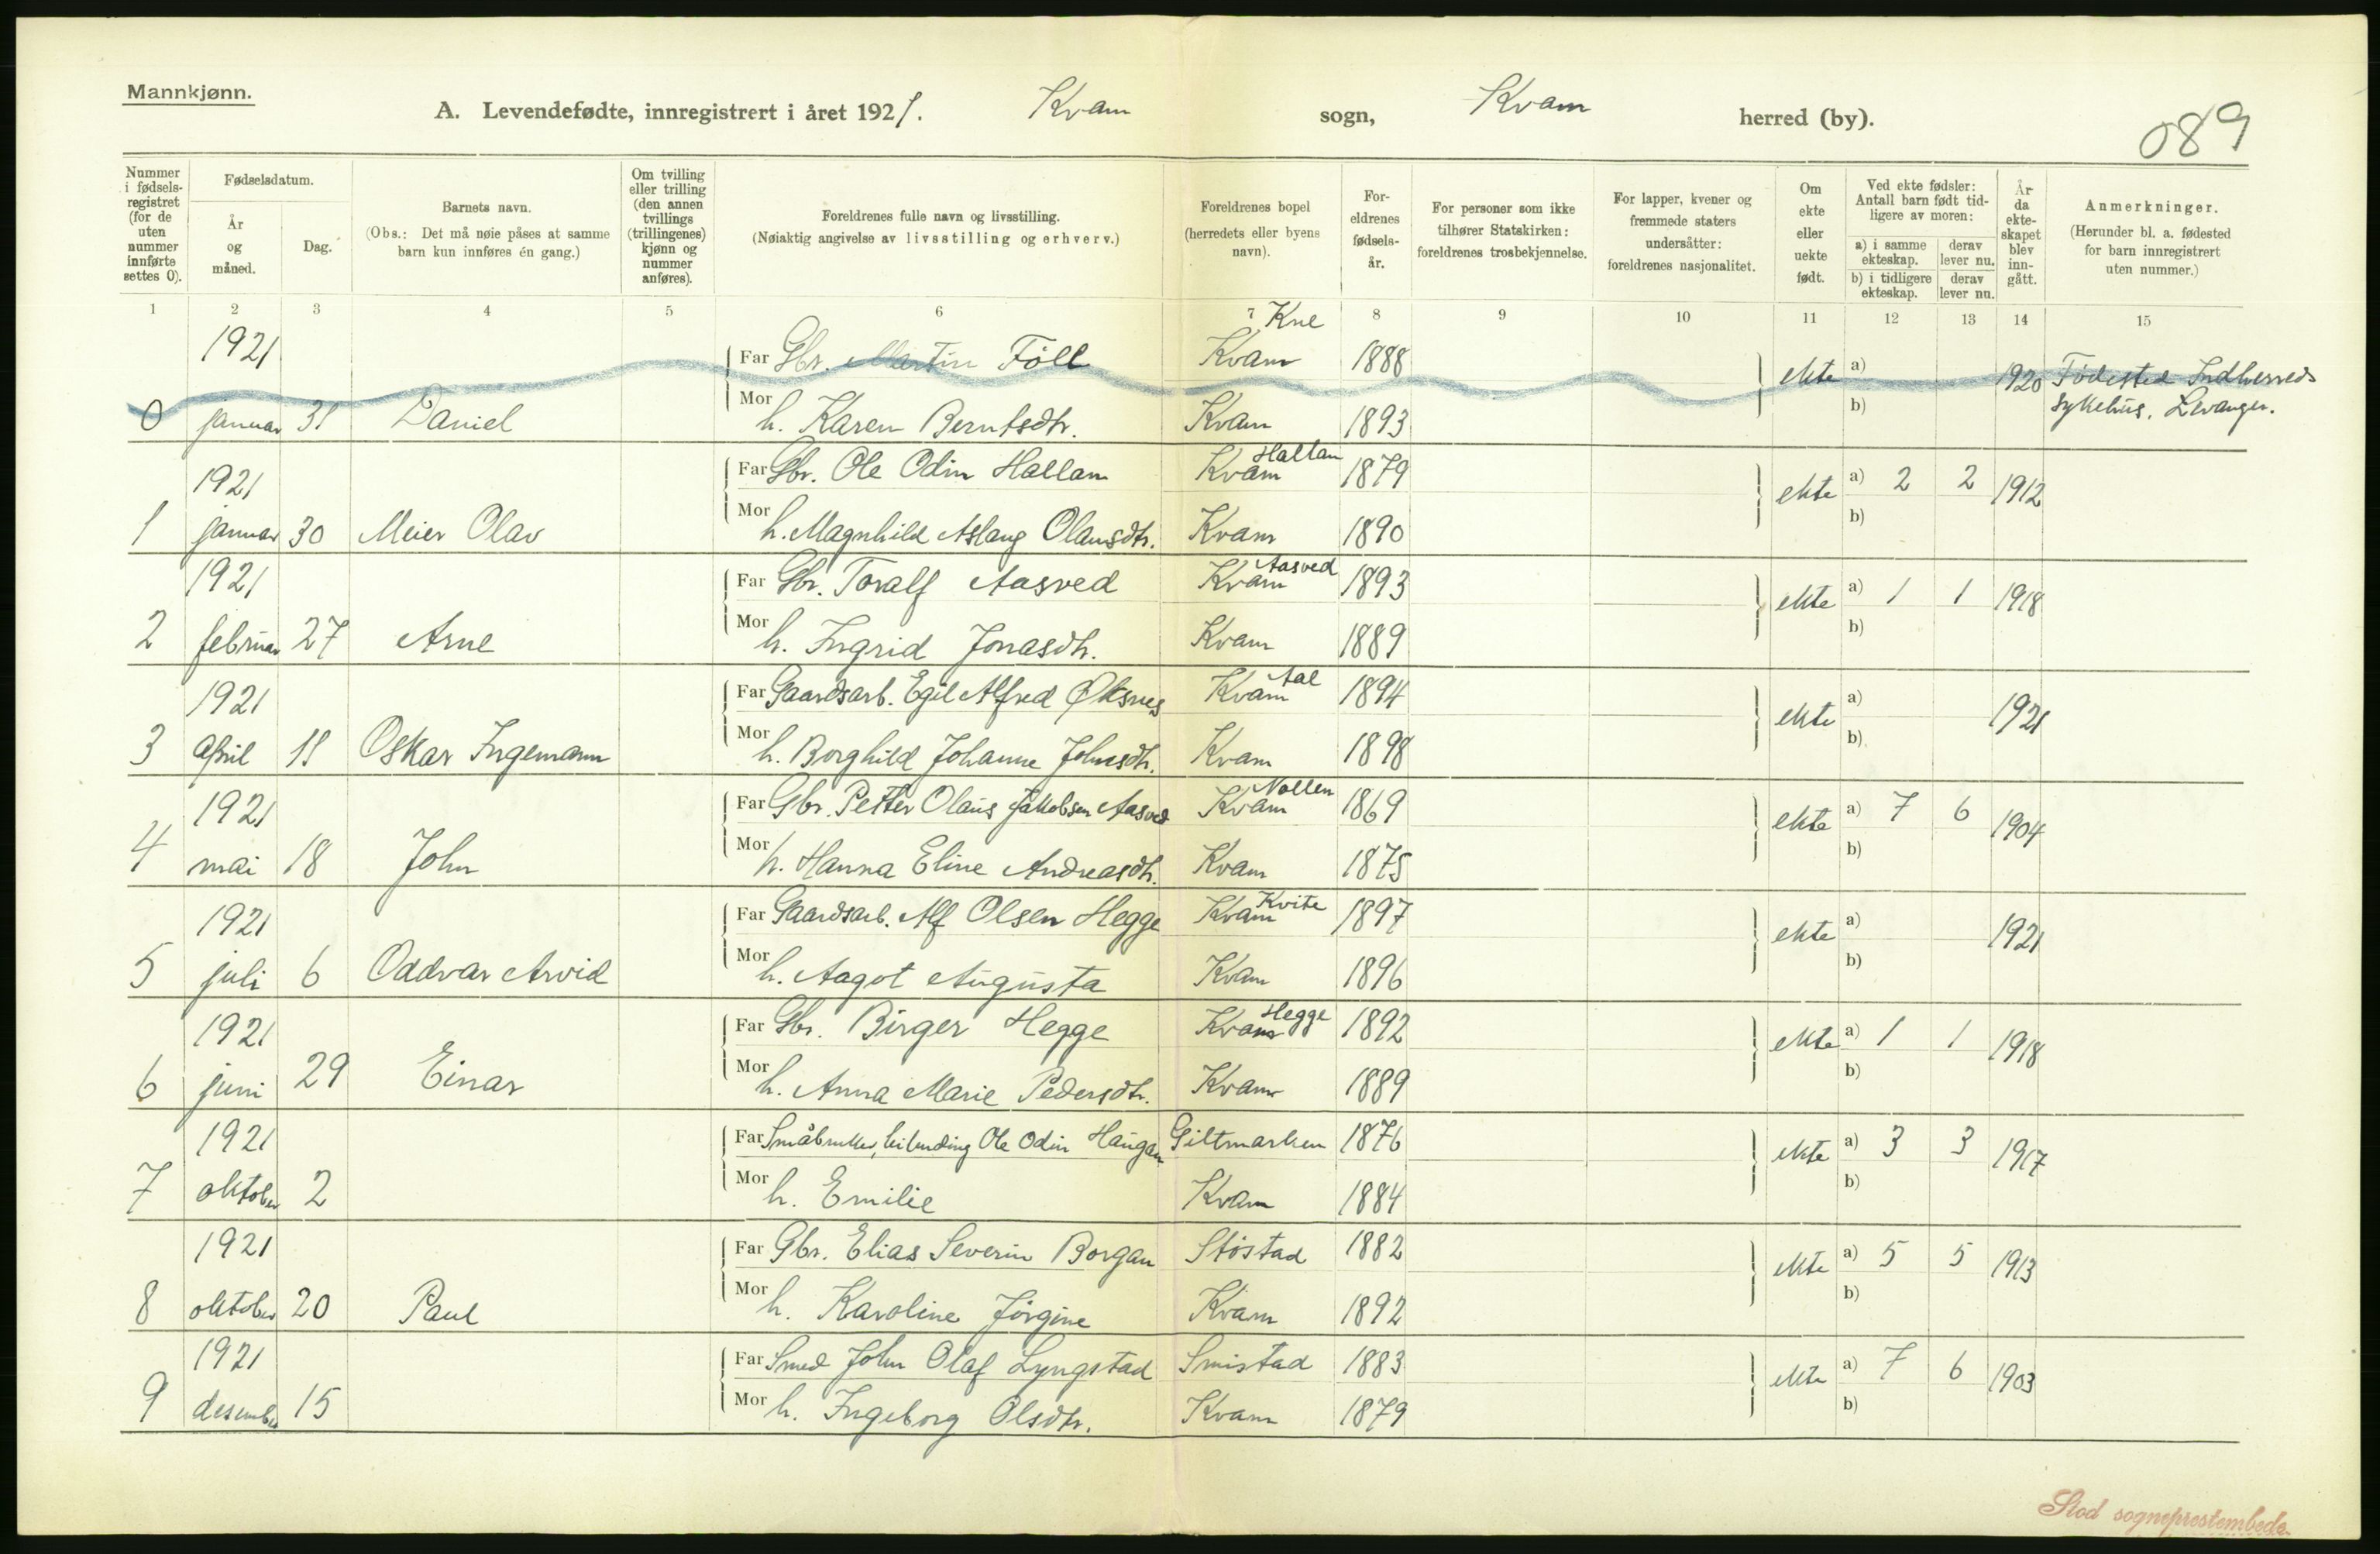 Mannkjønn.
A. Levendefødte, innregistrert i året 1921. Kvam sogn, Kvam herred (by).
089
Nummer i fødsels-registret (for de uten nummer innførte settes 0).
Fødselsdatum.
År og måned.
Dag.
Barnets navn.
(Obs.: Det må nøie påses at samme barn kun innføres én gang.)
Om tvilling eller trilling (den annen tvillings (trillingenes) kjønn og nummer anføres).
Foreldrenes fulle navn og livsstilling.
(Nøiaktig angivelse av livsstilling og erhverv.)
Foreldrenes bopel (herredets eller byens navn).
For-eldrenes fødsels-år.
For personer som ikke tilhører Statskirken: foreldrenes trosbekjennelse.
For lapper, kvener og fremmede staters undersåtter: foreldrenes nasjonalitet.
Om ekte eller uekte født.
Ved ekte fødsler: Antall barn født tid-ligere av moren:
a) i samme ekteskap. derav lever nu.
b) i tidligere ekteskap. derav lever nu.
År da ekte-skapet blev inn-gått.
Anmerkninger.
(Herunder bl. a. fødested for barn innregistrert uten nummer.)
1 2 3 4 5 6 7 8 9 10 11 12 13 14 15
1921 Far Gbr. Martin Föll Kvam 1888 ekte a) 1920 Fødested Indherreds
0 januar 31 Daniel Mor h. Karen Berntsdtr. Kvam 1893 b) sykehus, Levanger.
1921 Far Gbr. Ole Odin Hallam Kvam Hallan 1879 ekte a) 2 2 1912
1 januar 30 Meier Olav Mor h. Magnhild Aslaug Olausdtr. Kvam 1890 b)
1921 Far Gbr. Toralf Aasved Kvam Aasved 1893 ekte a) 1 1 1918
2 februar 27 Arne Mor h. Ingrid Jonasdtr. Kvam 1889 b)
1921 Far Gaardsarb. Egil Alfred Øksnes Kvam Aal 1894 ekte a) 1921
3 april 11 Oskar Ingemann Mor h. Borghild Johanne Johnsdtr. Kvam 1898 b)
1921 Far Gbr. Petter Olaus Jakobsen Aasved Kvam Vollen 1869 ekte a) 7 6 1904
4 mai 18 John Mor h. Hanna Eline Andreasdtr. Kvam 1875 b)
1921 Far Gaardsarb. Alf Olsen Hegge Kvam Kvite 1897 ekte a) 1921
5 juli 6 Oddvar Arvid Mor h. Aagot Augusta Kvam 1896 b)
1921 Far Gbr. Birger Hegge Kvam Hegge 1892 ekte a) 1 1 1918
6 juni 29 Einar Mor h. Anna Marie Pedersdtr. Kvam 1889 b)
1921 Far Småbruker, leilending Ole Odin Haugan Giltmarken 1876 ekte a) 3 3 1917
7 oktober 2 Mor h. Emilie Kvam 1884 b)
1921 Far Gbr. Elias Severin Borgan Støstad 1882 ekte a) 5 5 1913
8 oktober 20 Paul Mor h. Karoline Jørgine Kvam 1892 b)
1921 Far Smed John Olaf Lyngstad Smistad 1883 ekte a) 7 6 1903
9 desember 15 Mor h. Ingeborg Olsdtr. Kvam 1879 b)
Stod sogneprestembede